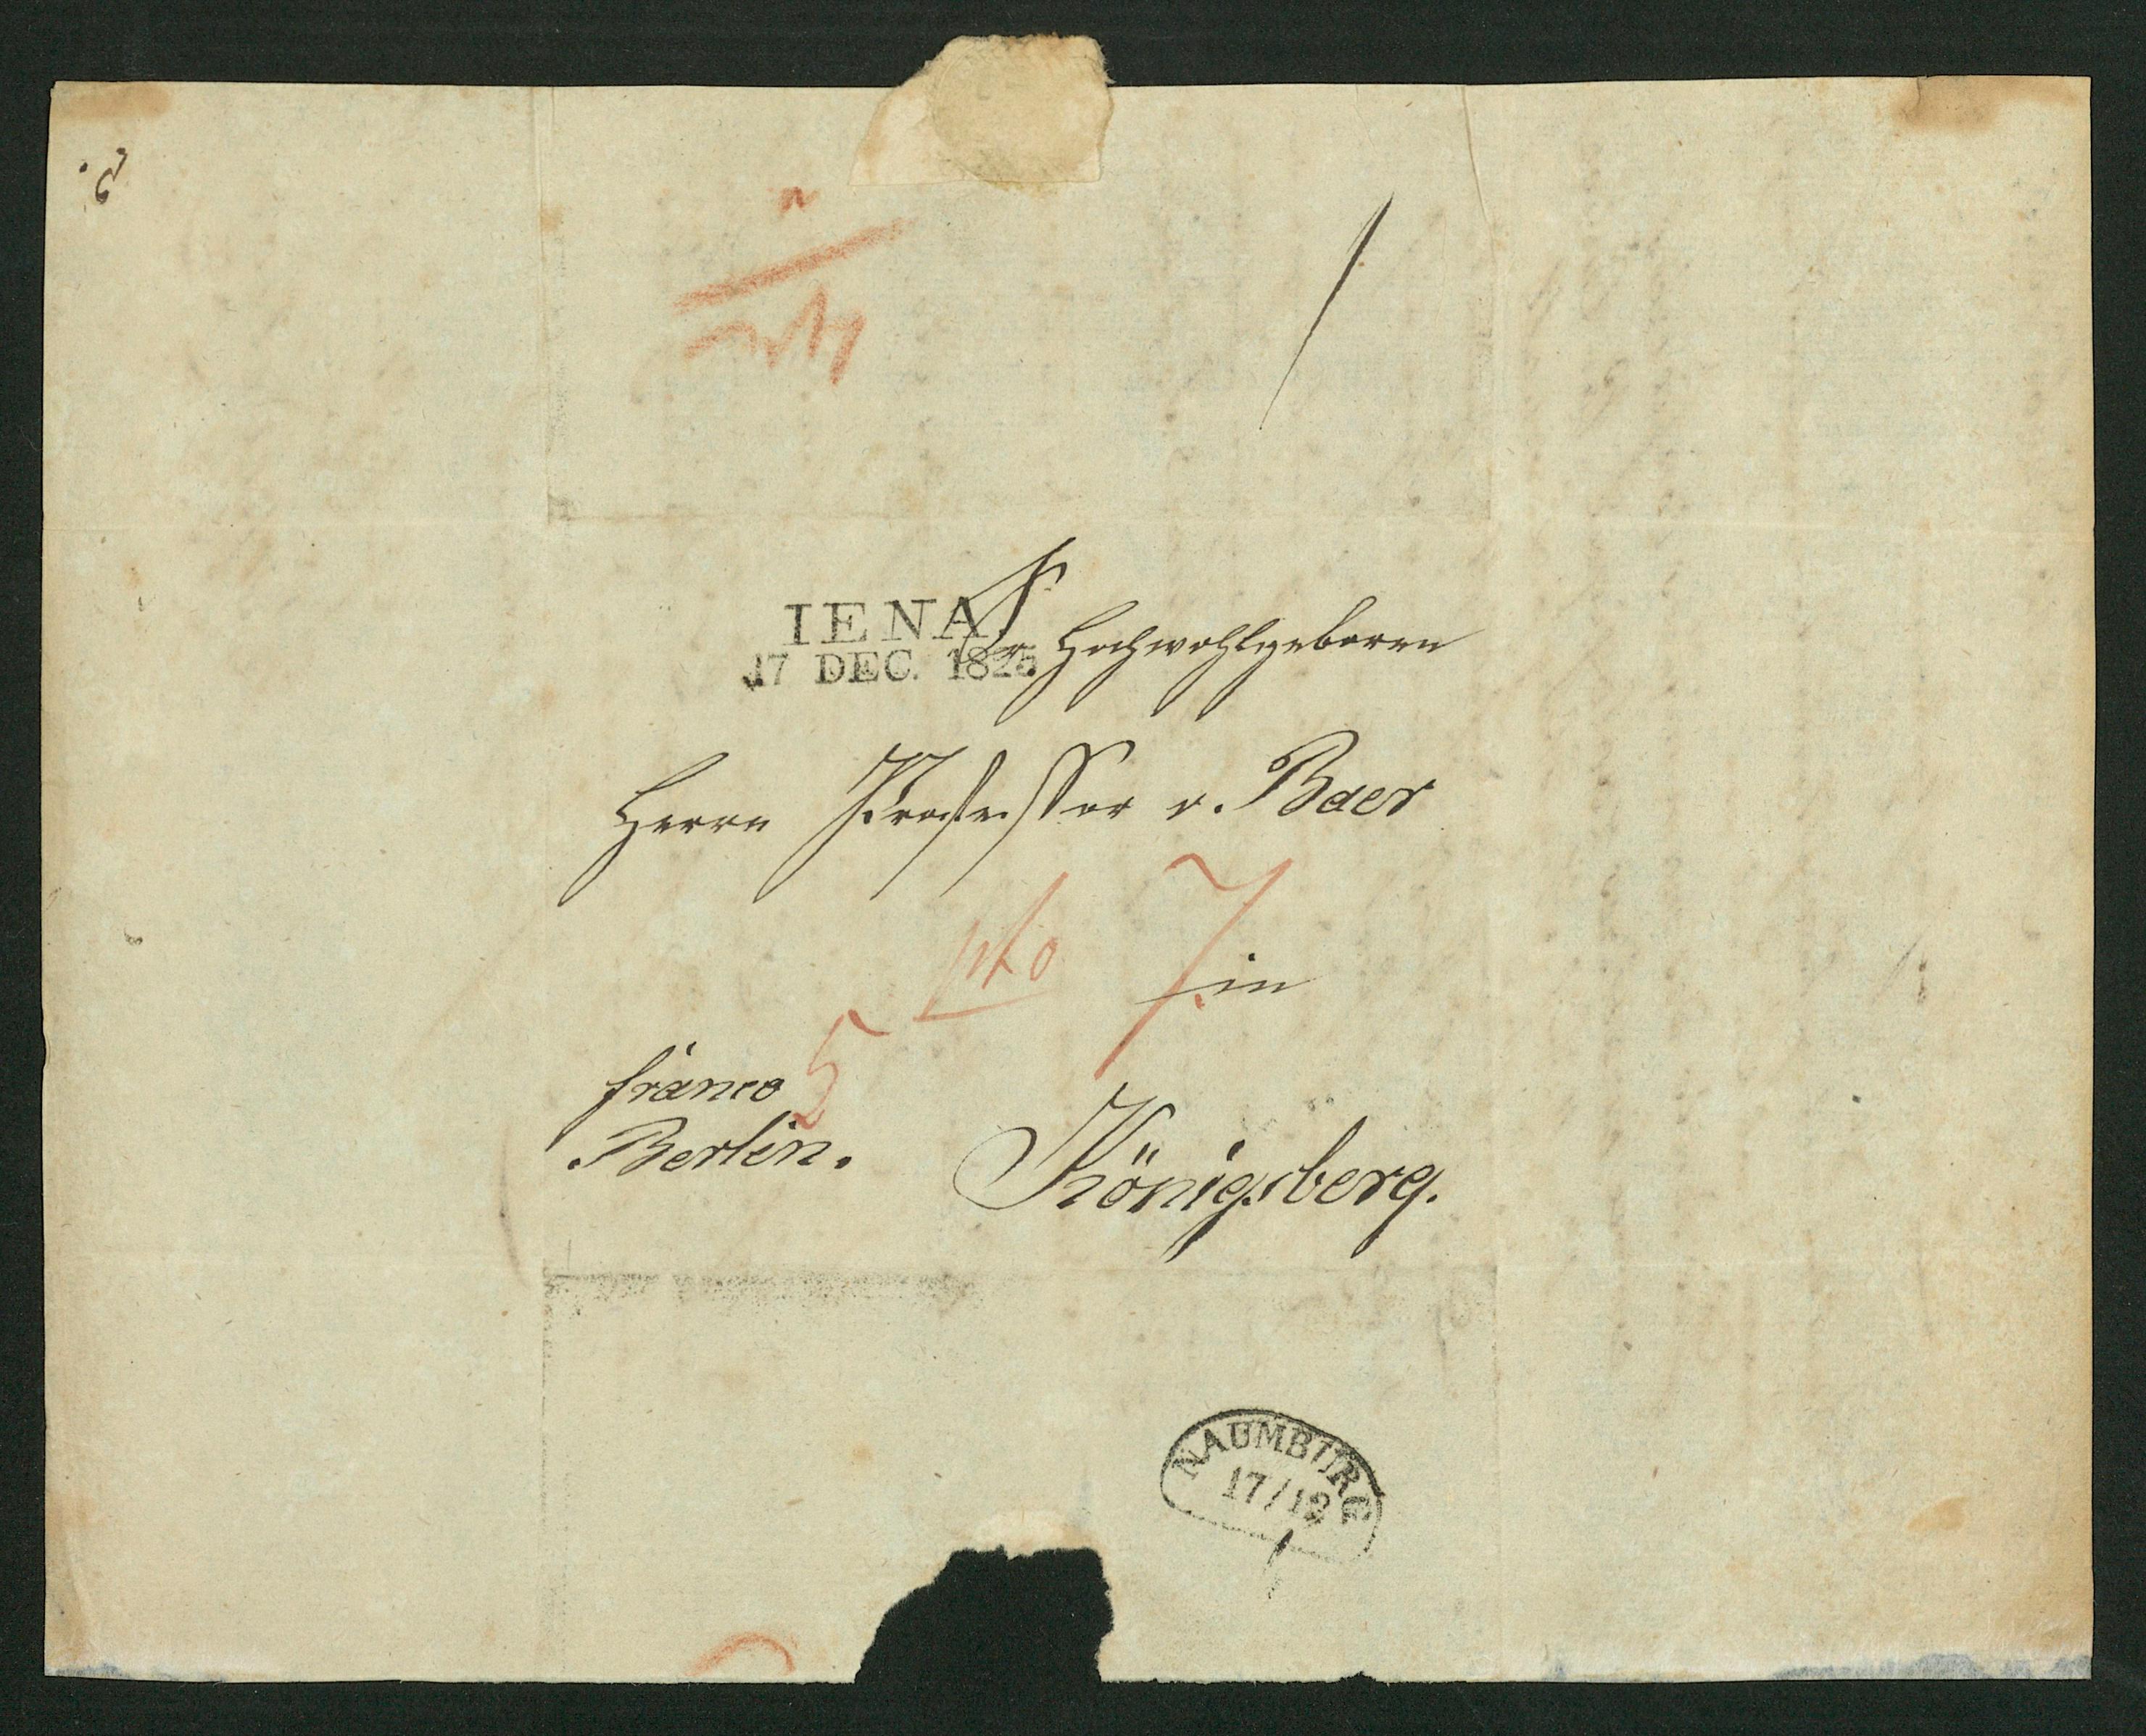 IENA
17 DEC. 1825
Sr Hochwohlgeboren
Herrn Professor v. Baer
pto 7.
in
5
franco
Berlin.
Königsberg.
NAUMBURG
17/12